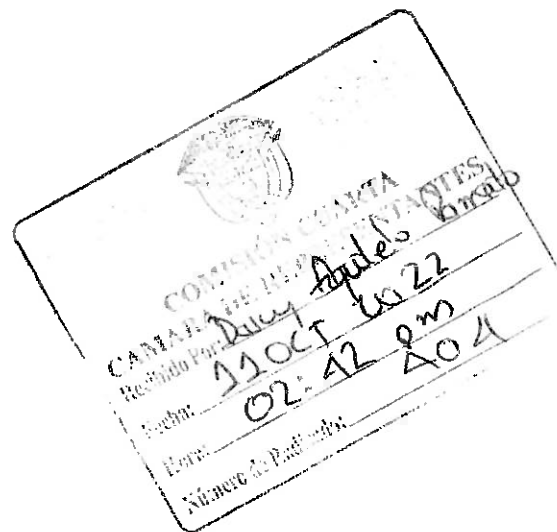 COMISIÓN CUARTA
CAMARA DE REPRESENTANTES
Recibido Por:
Fecha: 11 OCT 2022
Hora: 02:42 pm
Número de Radicado: 404